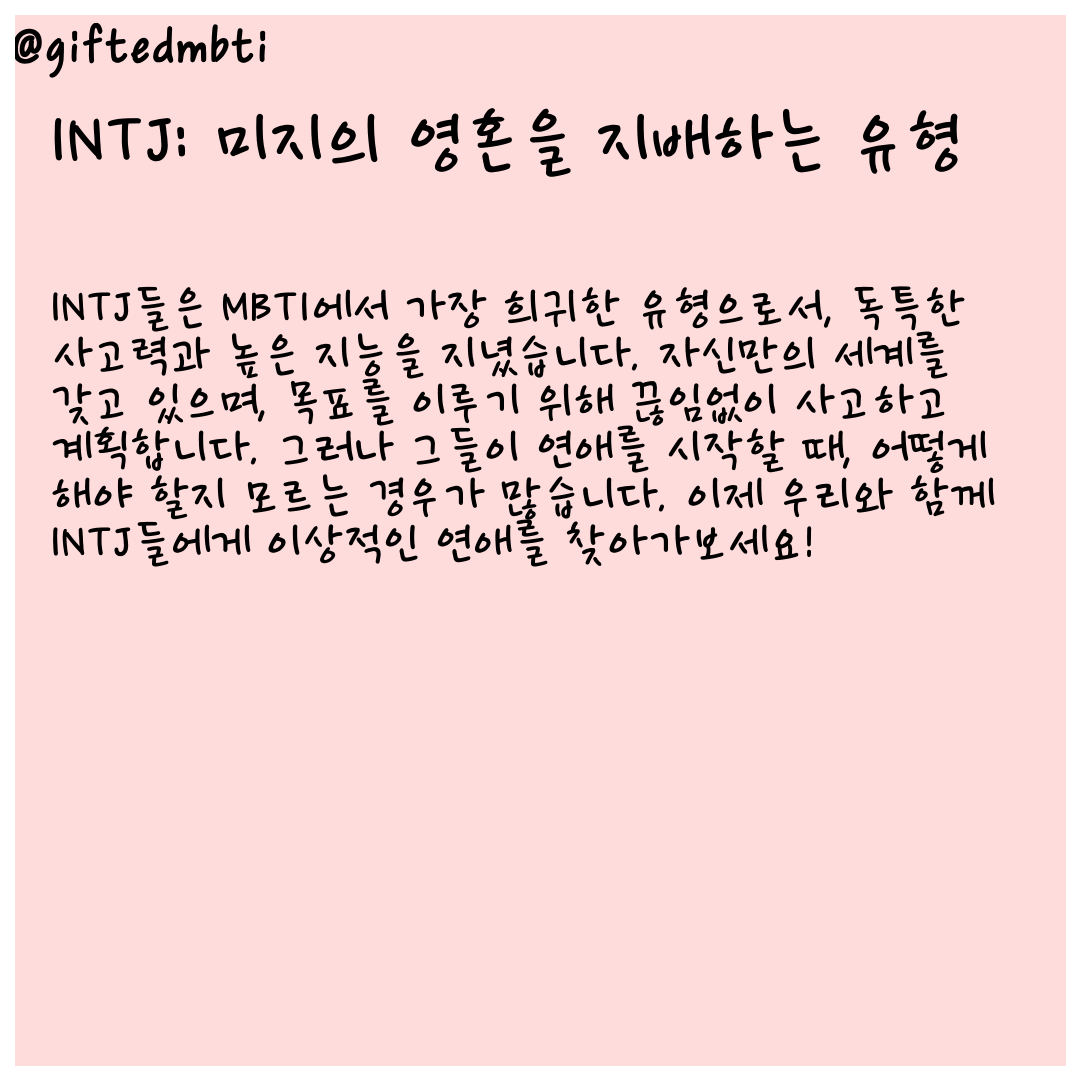 @giftedmbti
INTJ: 미지의 영혼을 지배하는 유형
INTJ들은 MBTI에서 가장 희귀한 유형으로서, 독특한
사고력과 높은 지능을 지녔습니다. 자신만의 세계를
갖고 있으며, 목표를 이루기 위해 끊임없이 사고하고
계획합니다. 그러나 그들이 연애를 시작할 때, 어떻게
해야 할지 모르는 경우가 많습니다. 이제 우리와 함께
INTJ들에게 이상적인 연애를 찾아가보세요!